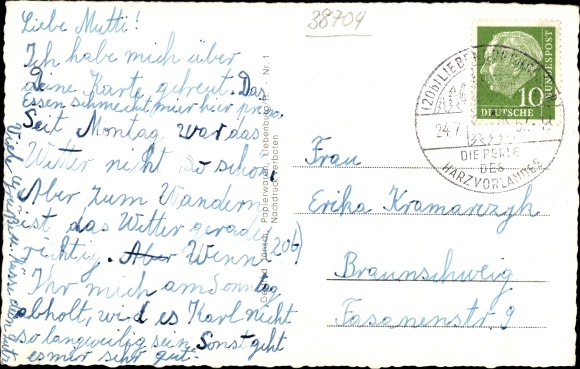 Liebe Mutti!
Ich habe mich über
Deine Karte gefreut. Das
Essen schmeckt mir hier prima.
Seit Montag war das
Wetter nicht so schön.
Aber zum Wandern
ist das Wetter gerade
richtig. Aber Wenn
Ihr mich am Sonntag
abholt, wird es Karl nicht
so langweilig sein. Sonst geht
es mir sehr gut.
Viele
38704
Nr. 1
Papierwaren, Liebenburg
Nachdruck verboten
DEUTSCHE
BUNDESPOST
10
(20b) LIEBENBURG
24.7
DIE PERLE
DES
HARZVORLANDES
Frau
Erika Kramarczyk
20b)
Braunschweig
Fasanenstr. 9